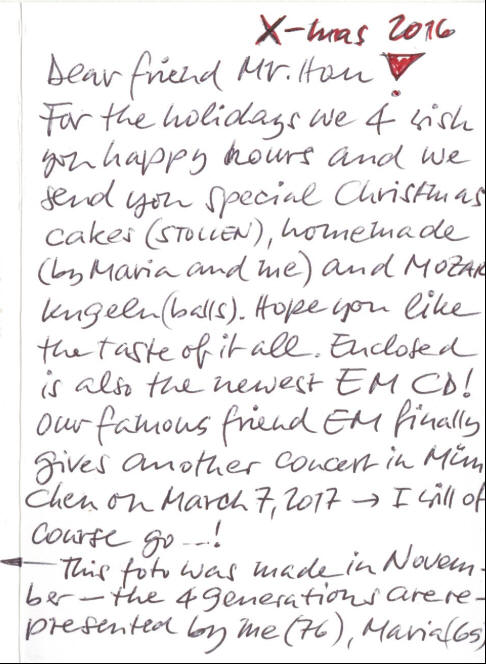 X-mas 2016
Dear friend Mr. Hon
For the holidays we 4 wish
you happy hours and we
send you special Christmas
cakes (STOLLEN), homemade
(by Maria and me) and MOZAR
kugeln (balls). Hope you like
the taste of it all. Enclosed
is also the newest EM CD!
Our famous friend EM finally
gives another concert in Mün
chen on March 7, 2017 → I will of
course go --!
This foto was made in Novem-
ber – the 4 generations are re-
presented by me (76), Maria (65)